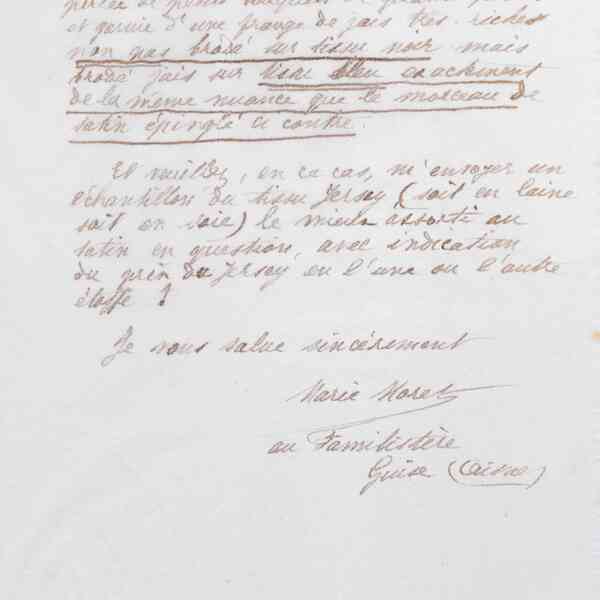 et garnie d'une frange de jais très riches
non pas brodé sur tissu noir mais
brodé jais sur tissu bleu exactement
de la même nuance que le morceau de
satin épinglé ci contre.
Et veuillez, en ce cas, m'envoyer un
échantillon du tissu Jersey (soit en laine
soit en soie) le mieux assorti au
satin en question, avec indication
du prix du Jersey en l'une ou l'autre
étoffe ?
Je vous salue sincèrement
Marie Moret
au Familistère
Guise (Aisne)